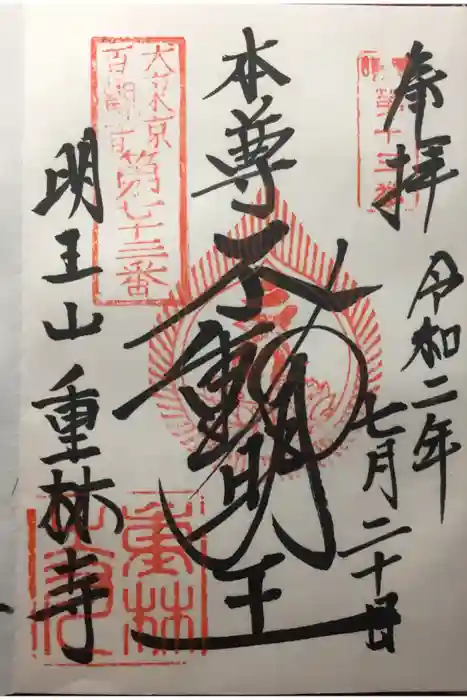 奉拝
令和二年
七月二十日
本尊
不動明王
明王山 重林寺
大東京
百観音
第七十三番
重林